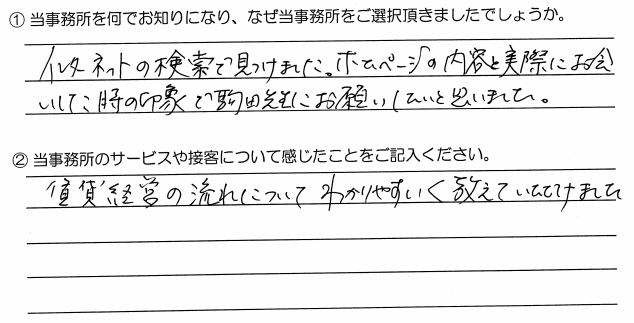 ① 当事務所を何でお知りになり、なぜ当事務所をご選択頂きましたでしょうか。
インターネットの検索で見つけました。ホームページの内容と実際にお会
いした時の印象で駒田先生にお願いしたいと思いました。
② 当事務所のサービスや接客について感じたことをご記入ください。
賃貸経営の流れについてわかりやすいく教えていただけました